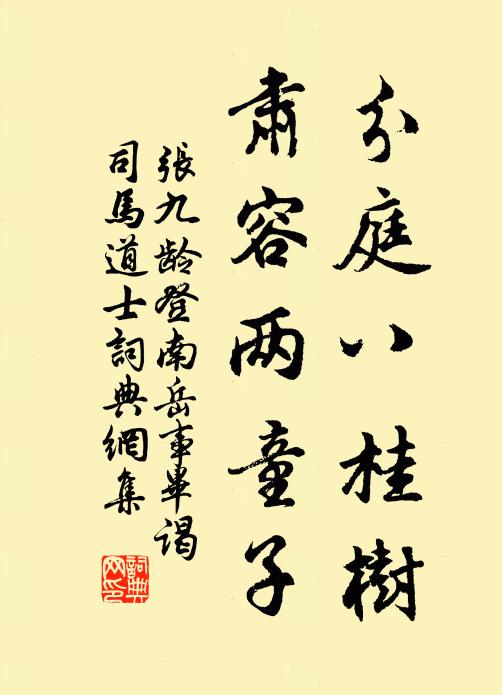 分庭八桂樹
肅容两童子
張九龄登南岳事畢谒
司馬道士詞典網集
詞典
网印